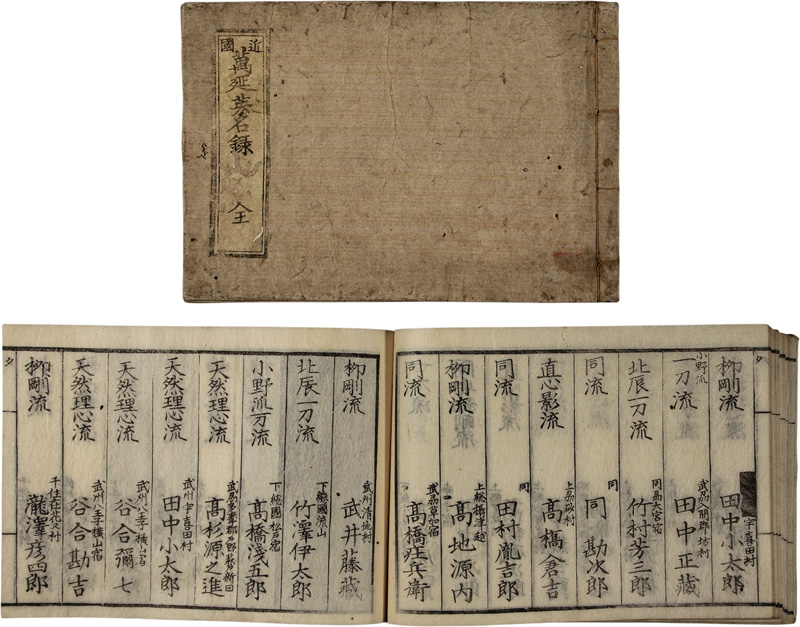 近國
萬延英名録
全
夕
柳剛流
宇喜田村
田中小太郎
小野派
一刀流
田中正藏
北辰一刀流
同州大宮宿
竹村芳三郎
同流
同
同勘次郎
直心影流
髙橋倉吉
同流
同
田村胤吉郎
柳剛流
髙地源内
同流
武州草加宿
柳剛流
武州清地村
武井藤藏
北辰一刀流
下總國流山
竹澤伊太郎
小野派一刀流
下總國松戸宿
髙橋淺五郎
天然理心流
髙杉源之進
天然理心流
武州宇喜田村
田中小太郎
天然理心流
武州八王子横山宿
谷合彌七
天然理心流
武州八王子横山宿
谷合勘吉
柳剛流
瀧澤彦四郎
夕